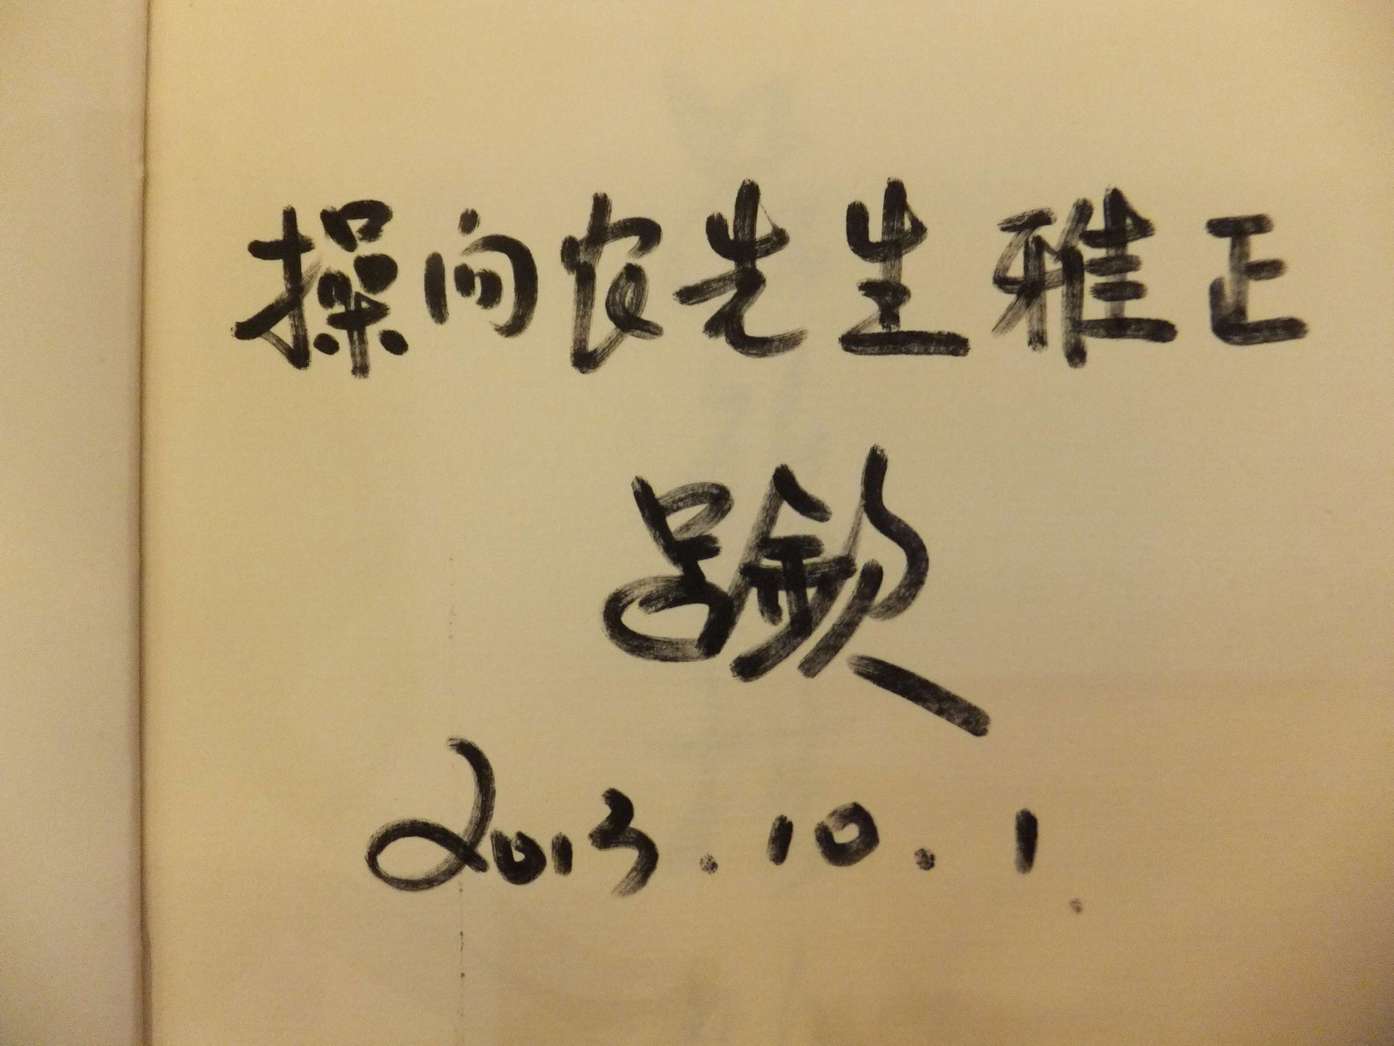 操向农先生雅正
吕钦
2013.10.1